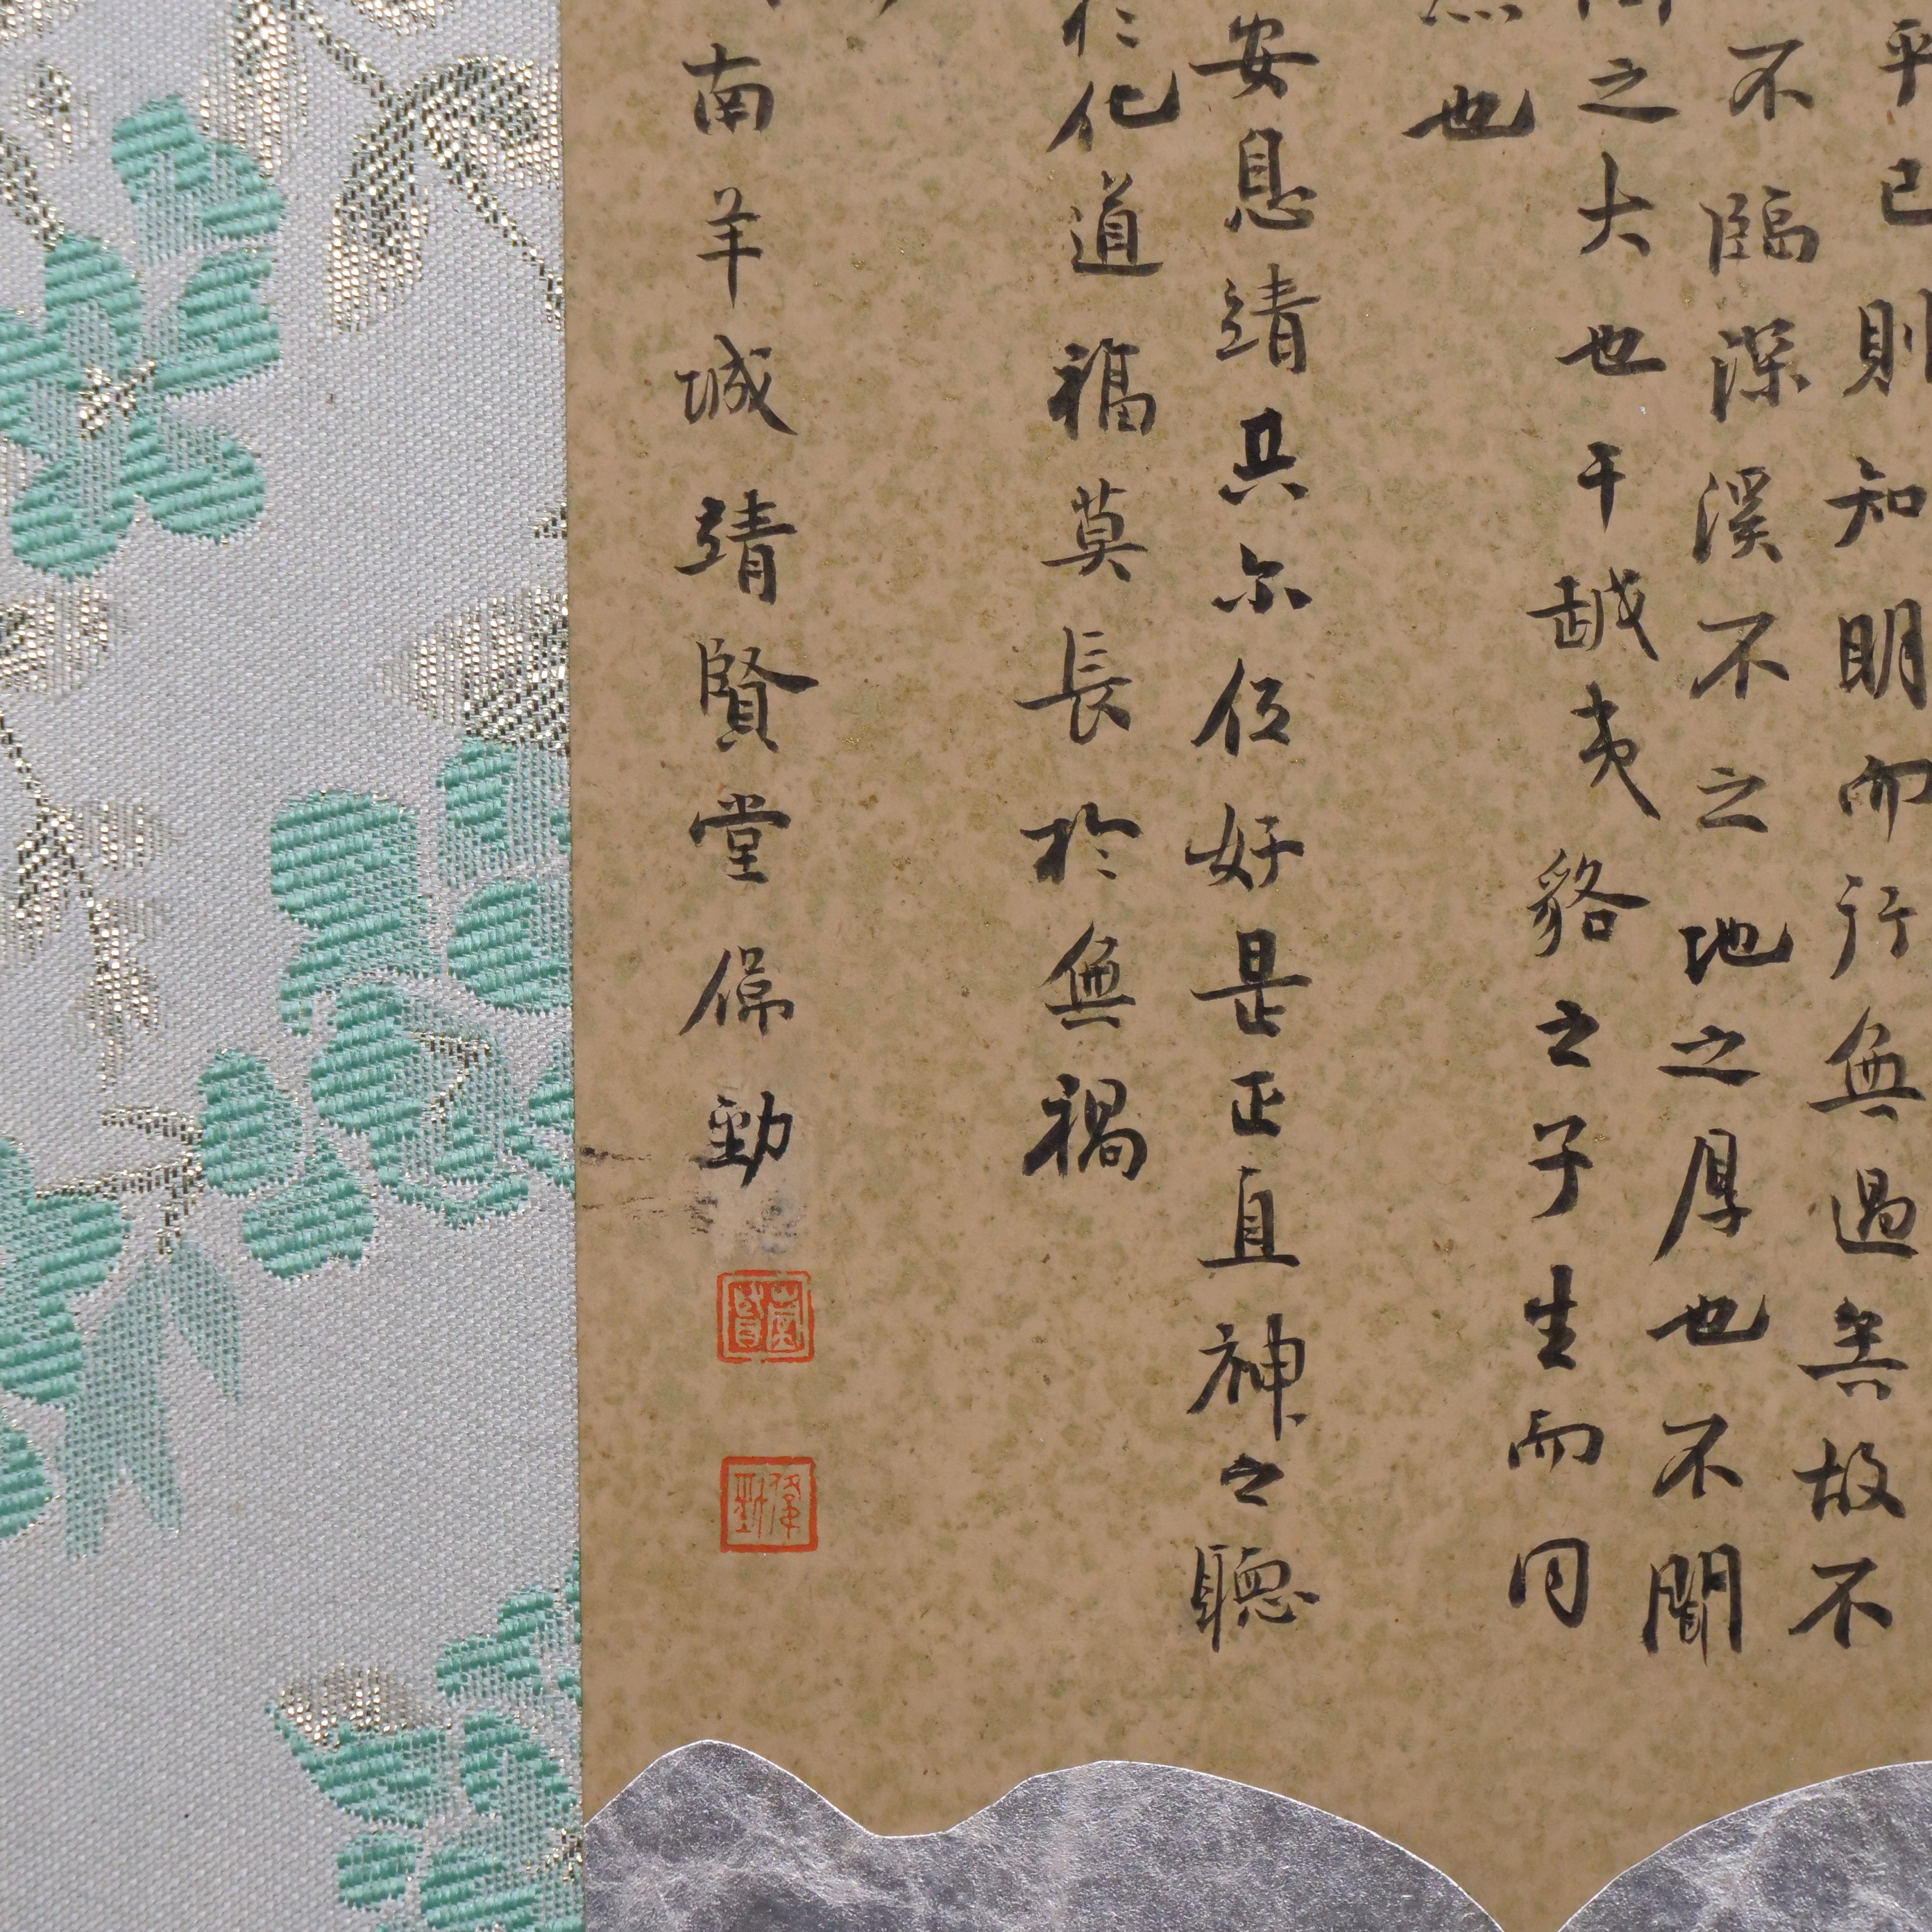 乎己則知明而行無過矣故不
不臨深溪不之地之厚也不聞
之大也干越夷貉之子生而同
然也
安息靖共尔位好是正直神之聽
於化道福莫長於無禍
南羊城靖賢堂偉勁
偉勁